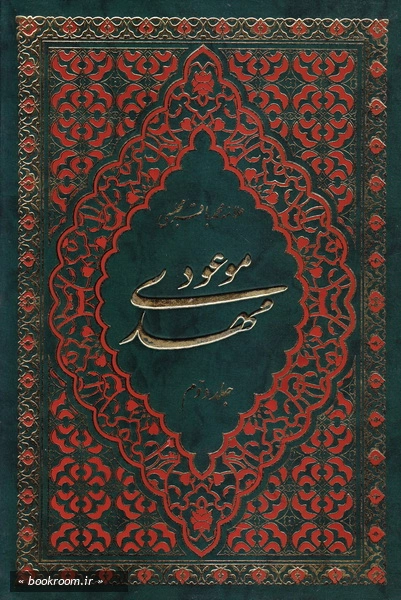 علامه محمد باقر مجلسی
مهدی موعود
جلد دوم
« bookroom.ir »